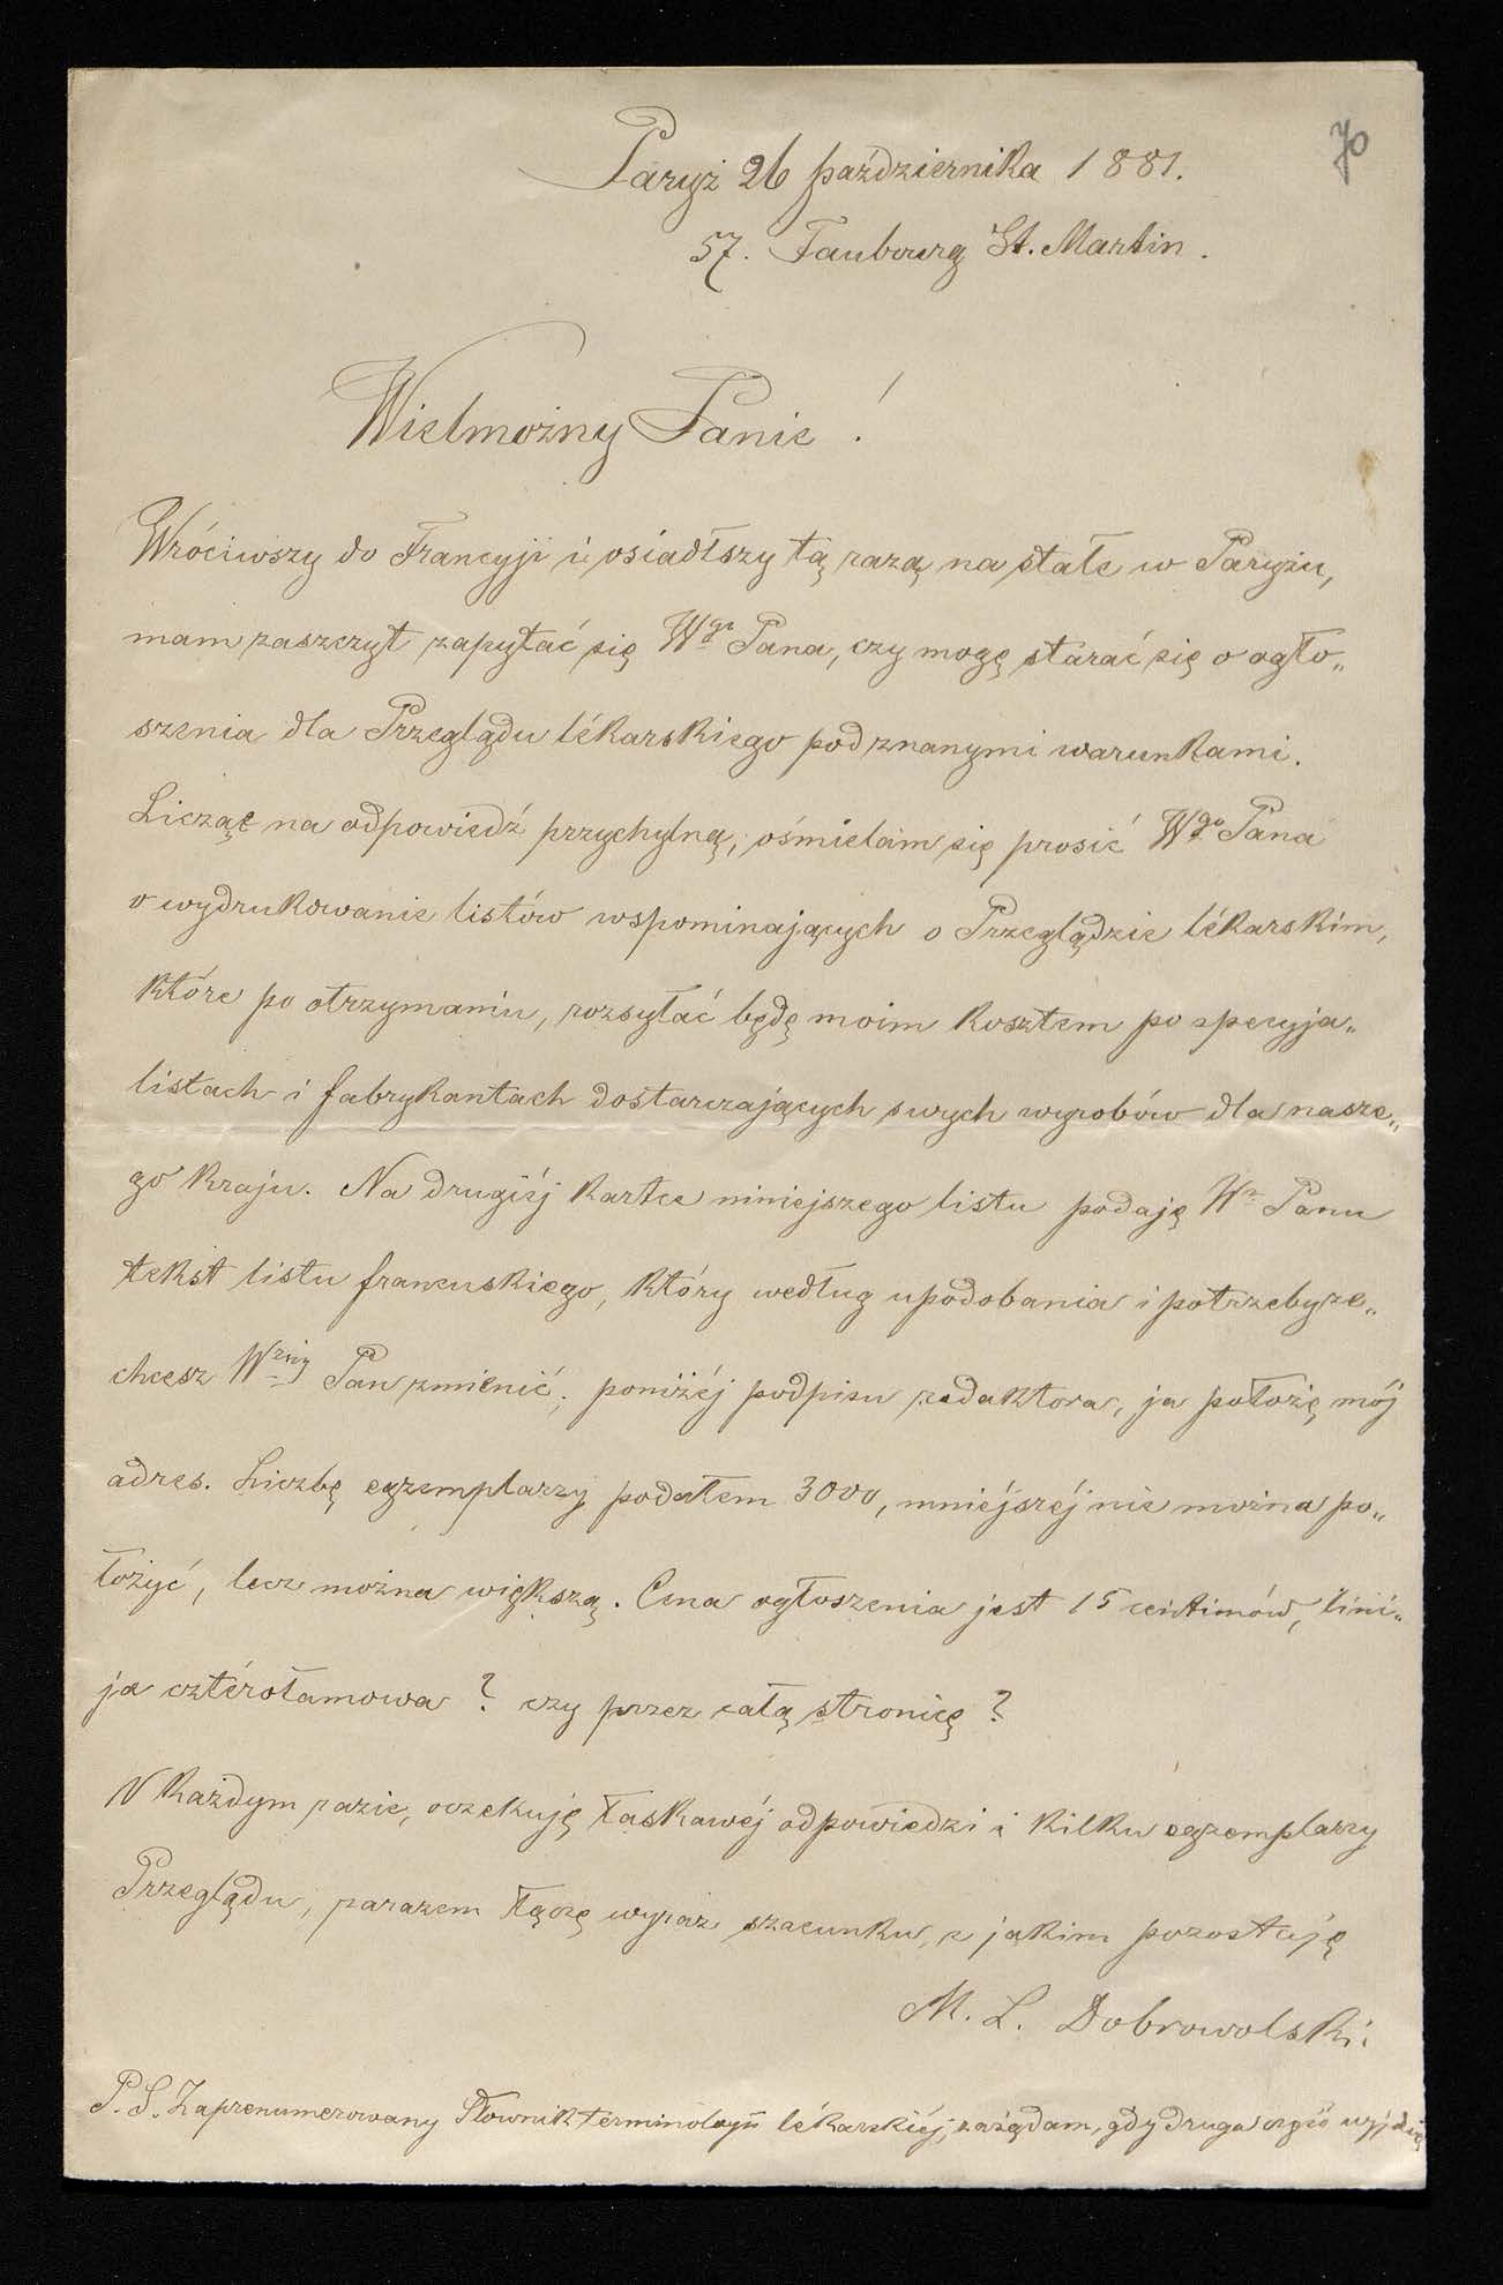 70
Paryż 26 października 1881.
57. Faubourg St. Martin.
Wielmożny Panie!
Wróciwszy do Francyji i osiadłszy tą razą na stałe w Paryżu,
mam zaszczyt zapytać się Wgo Pana, czy mogę starać się o ogło„
szenia dla Przeglądu lékarskiego pod znanymi warunkami.
Licząc na odpowiedź przychylną, ośmielam się prosić Wgo Pana
o wydrukowanie listów wspominających o Przeglądzie lékarskim,
które po otrzymaniu, rozsyłać będę moim kosztem po specyja„
listach i fabrykantach dostarczających swych wyrobów dla nasze„
go kraju. Na drugiéj kartce niniejszego listu podaję Wu Panu
tekst listu francuskiego, który według upodobania i potrzeby ze„
chcesz Wny Pan zmienić; poniżéj podpisu redaktora, ja położę mój
adres. Liczbę egzemplarzy podałem 3000, mniéjszéj nie można po„
łożyć, lecz można większą. Cena ogłoszenia jest 15 centimów, lini„
ja cztérołamowa? czy przez całą stronicę?
W każdym razie, oczekuję łaskawéj odpowiedzi i kilku egzemplarzy
Przeglądu, zarazem łączę wyraz szacunku, z jakim pozostaję
M. L. Dobrowolski.
P. S. Zaprenumerowany Słownik terminologii lékarskiéj, zażądam, gdy druga część wyjdzie